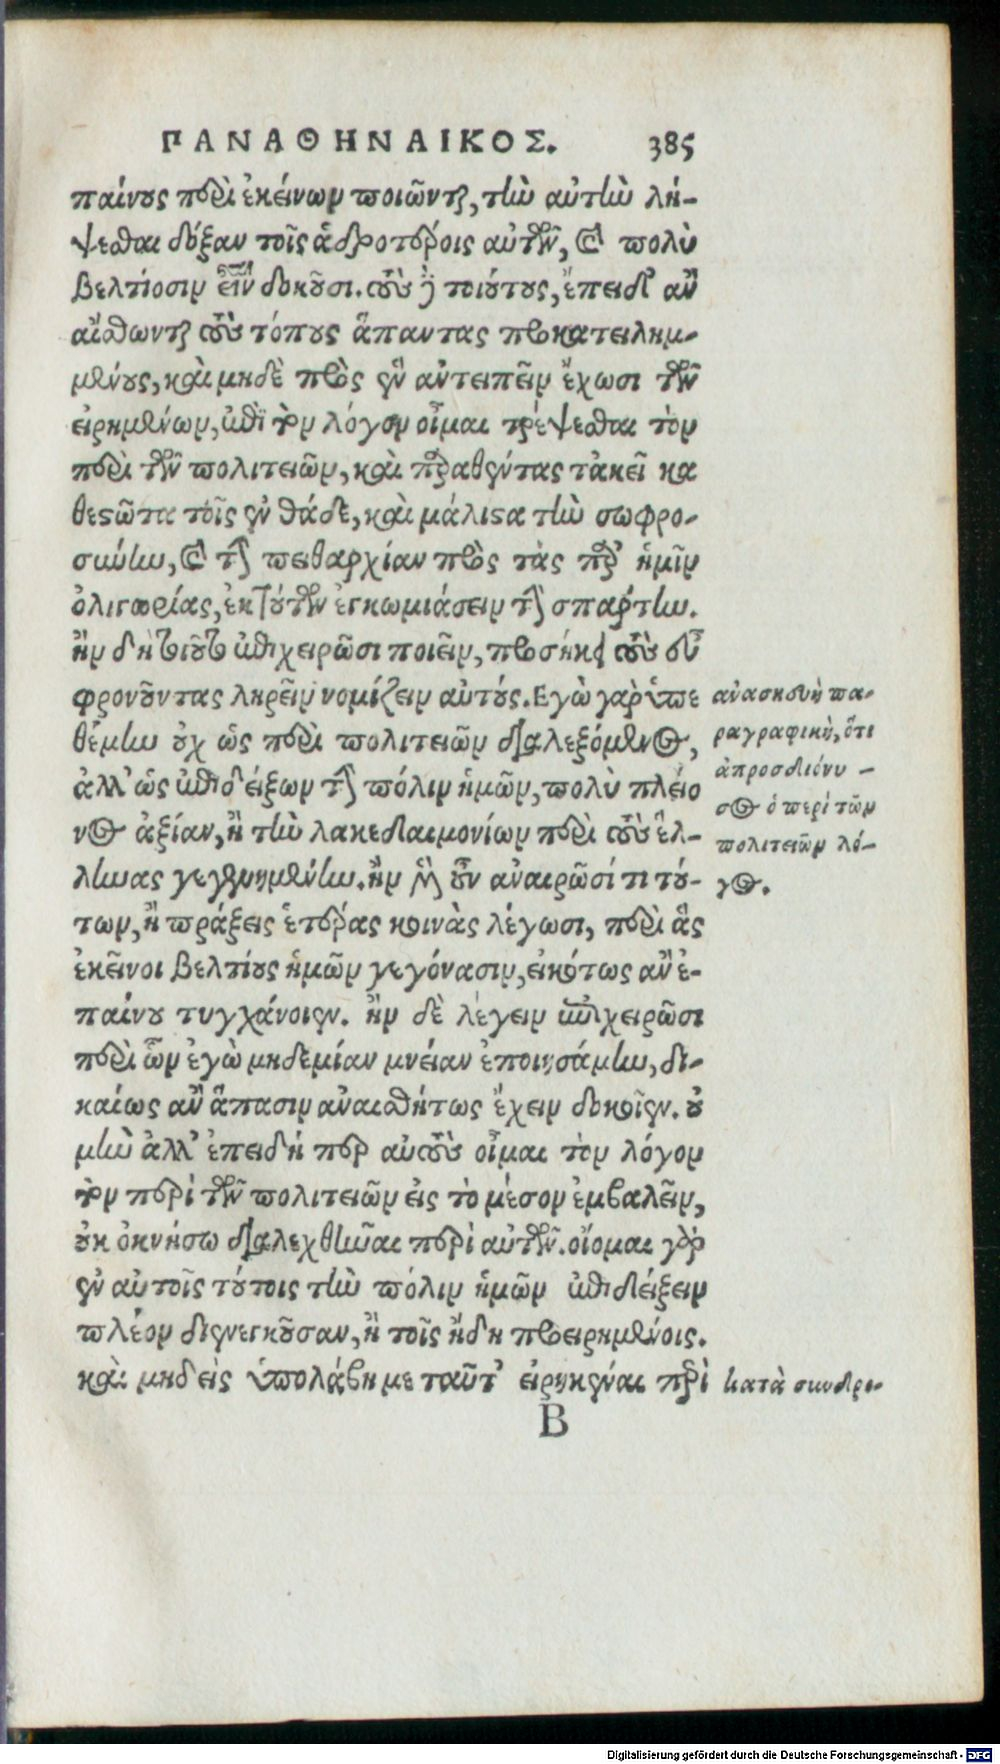 ΠΑΝΑΘΗΝΑΙΚΟΣ. 385
παίνους περὶ ἐκείνων ποιῶνται, τὴν αὐτὴν λή-
ψεσθαι δόξαν τοῖς ἁδροτέροις αὐτῶν, καὶ πολὺ
βελτίοσιν εἶναι δοκοῦσι. τοὺς δὲ τοιούτους, ἐπειδ' ἂν
αἴσθωνται τοὺς τόπους ἅπαντας προκατειλημ-
μένους, καὶ μηδὲ πρὸς ἓν ἀντειπεῖν ἔχωσι τῶν
εἰρημένων, ἐπὶ τὸν λόγον οἶμαι τρέψεσθαι τὸν
περὶ τῶν πολιτειῶν, καὶ παραθέντας τἀκεῖ κα
θεστῶτα τοῖς ἐνθάδε, καὶ μάλιστα τὴν σωφρο-
σύνην, καὶ τὴν πειθαρχίαν πρὸς τὰς παρ' ἡμῖν
ὀλιγωρίας, ἐκ τούτων ἐγκωμιάσειν τὴν σπάρτην.
ἢν δὴ τοιοῦτο ἐπιχειρῶσι ποιεῖν, προσήκει τοὺς εὖ
φρονοῦντας ληρεῖν νομίζειν αὐτούς. Εγὼ γὰρ ὑπε
θέμην οὐχ ὡς περὶ πολιτειῶν διαλεξόμενος,
ἀλλ' ὡς ἐπιδείξων τὴν πόλιν ἡμῶν, πολὺ πλείο
νος ἀξίαν, ἢ τὴν λακεδαιμονίων περὶ τοὺς ἕλ-
ληνας γεγενημένην. ἢν μὲν οὖν ἀναιρῶσί τι τού-
των, ἢ πράξεις ἑτέρας κοινὰς λέγωσι, περὶ ἃς
ἐκεῖνοι βελτίους ἡμῶν γεγόνασιν, εἰκότως ἂν ἐ-
παίνου τυγχάνοιεν. ἢν δὲ λέγειν ἐπιχειρῶσι
περὶ ὧν ἐγὼ μηδεμίαν μνείαν ἐποιησάμην, δι-
καίως ἂν ἅπασιν ἀναισθήτως ἔχειν δοκοῖεν. οὐ
μὴν ἀλλ' ἐπειδή περ αὐτοὺς οἶμαι τὸν λόγον
τὸν περὶ τῶν πολιτειῶν εἰς τὸ μέσον ἐμβαλεῖν,
οὐκ ὀκνήσω διαλεχθῆναι περὶ αὐτῶν. οἴομαι γὰρ
ἐν αὐτοῖς τούτοις τὴν πόλιν ἡμῶν ἐπιδείξειν
πλέον διενεγκοῦσαν, ἢ τοῖς ἤδη προειρημένοις.
καὶ μηδεὶς ὑπολάβη με ταῦτ' εἰρηκέναι περὶ
ἀνασκευὴ πα-
ραγραφικὴ, ὅτι
ἀπροσδιόνυ-
σος ὁ περὶ τῶν
πολιτειῶν λό-
γος.
κατὰ συνδρο-
B
Digitalisierung gefördert durch die Deutsche Forschungsgemeinschaft - DFG